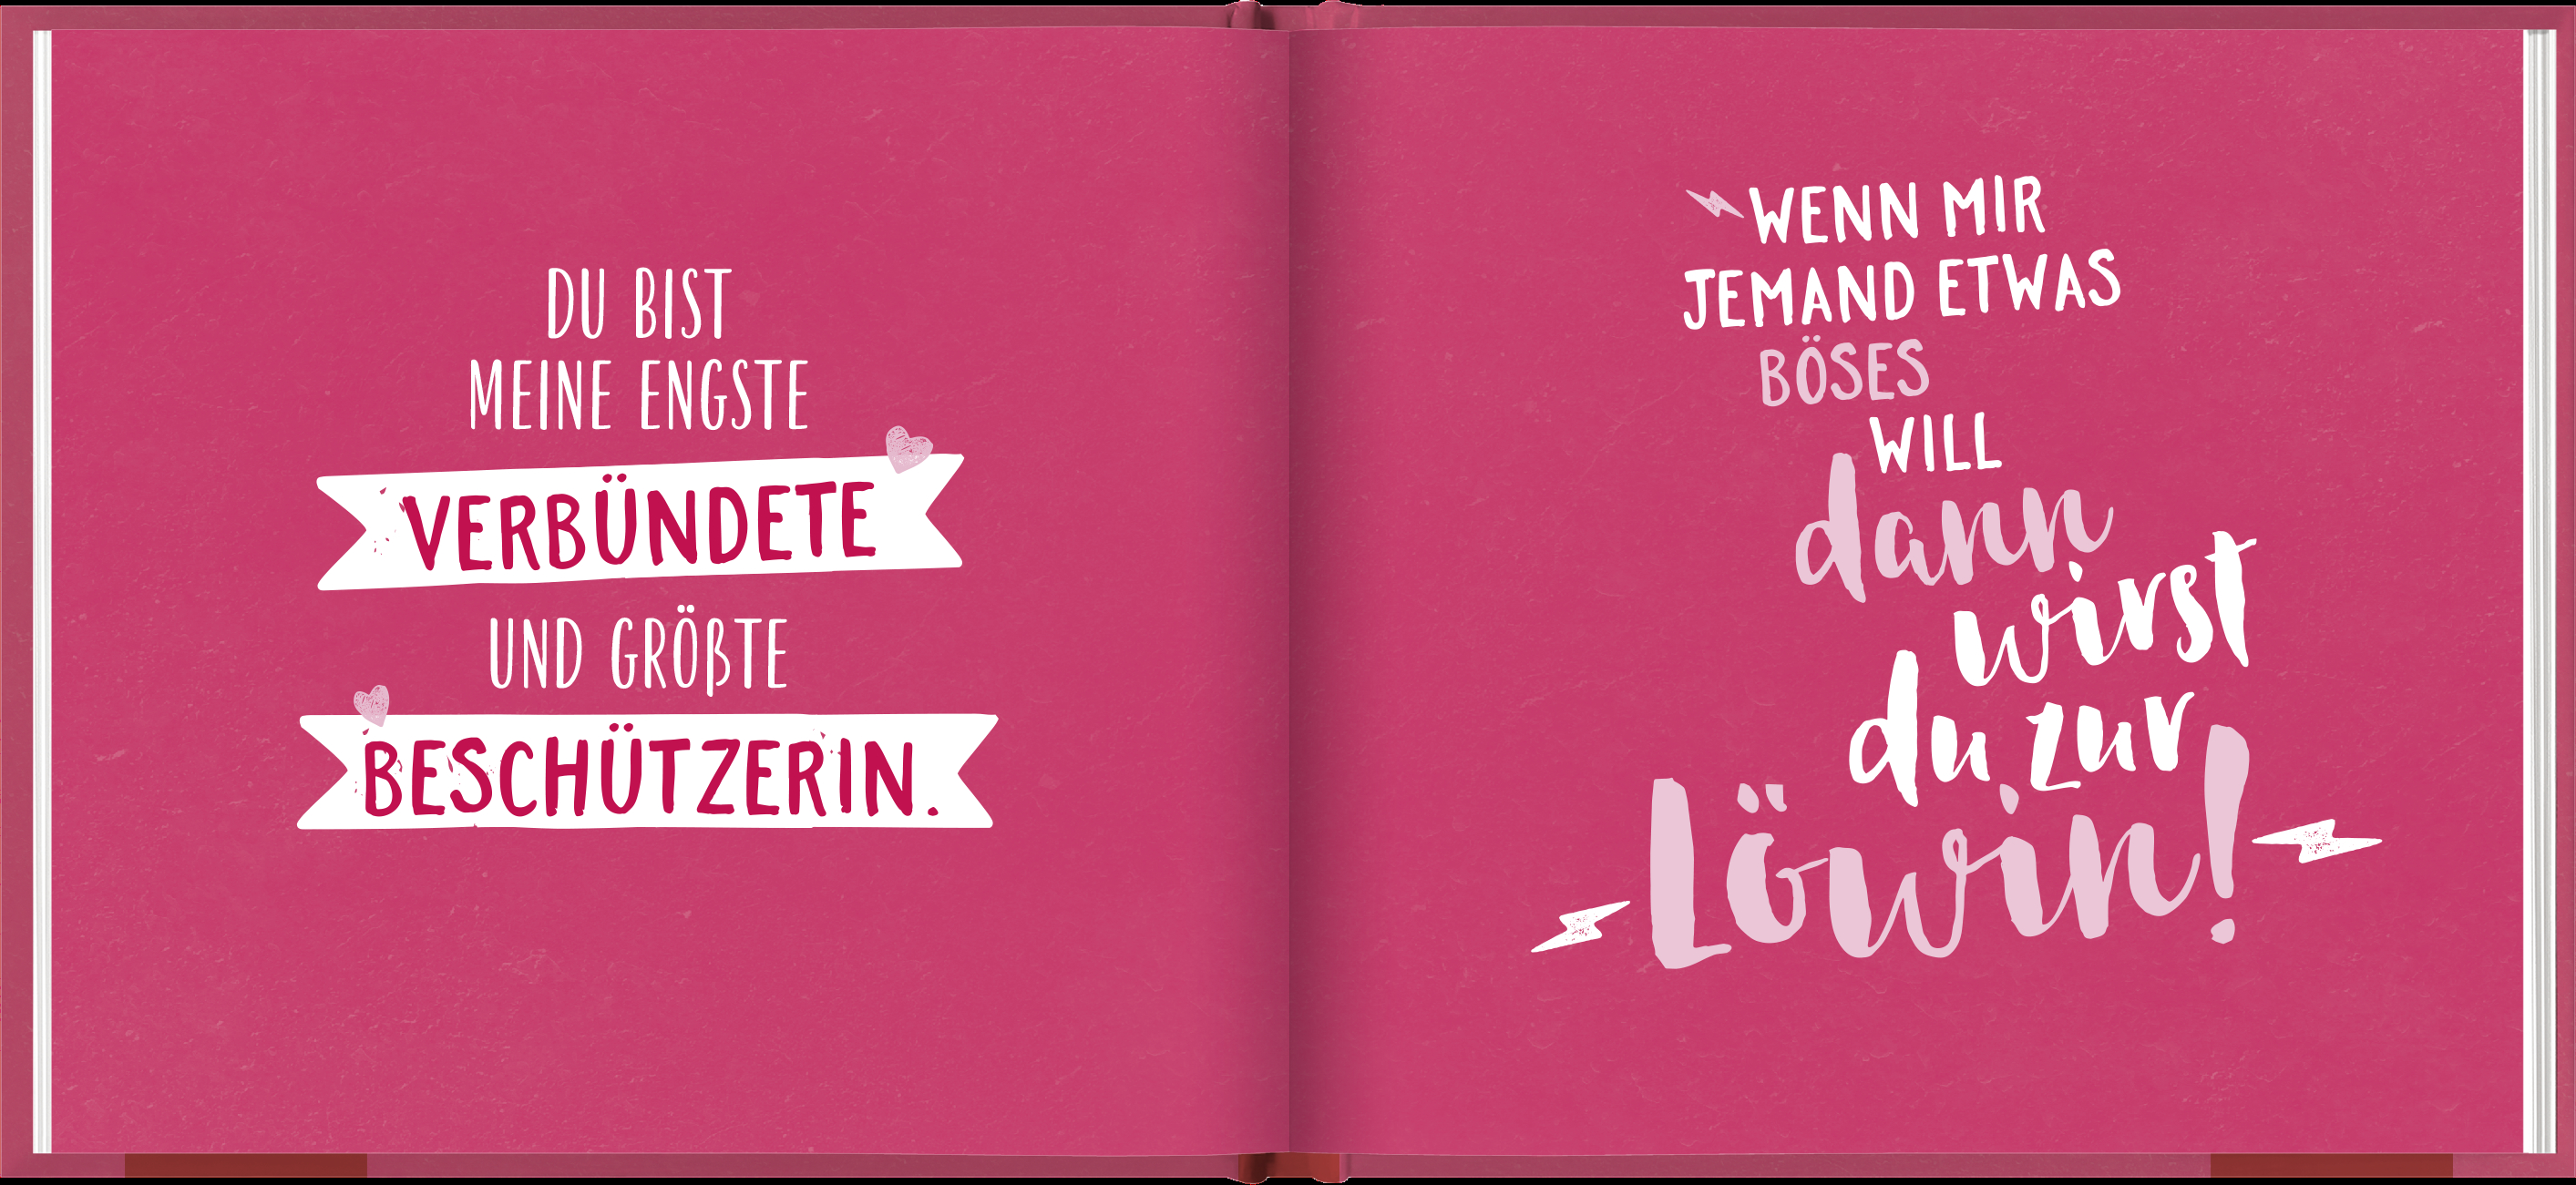 DU BIST
MEINE ENGSTE
VERBÜNDETE
UND GRÖßTE
BESCHÜTZERIN.
WENN MIR
JEMAND ETWAS
BÖSES
WILL
dann
wirst
du zur
Löwin!